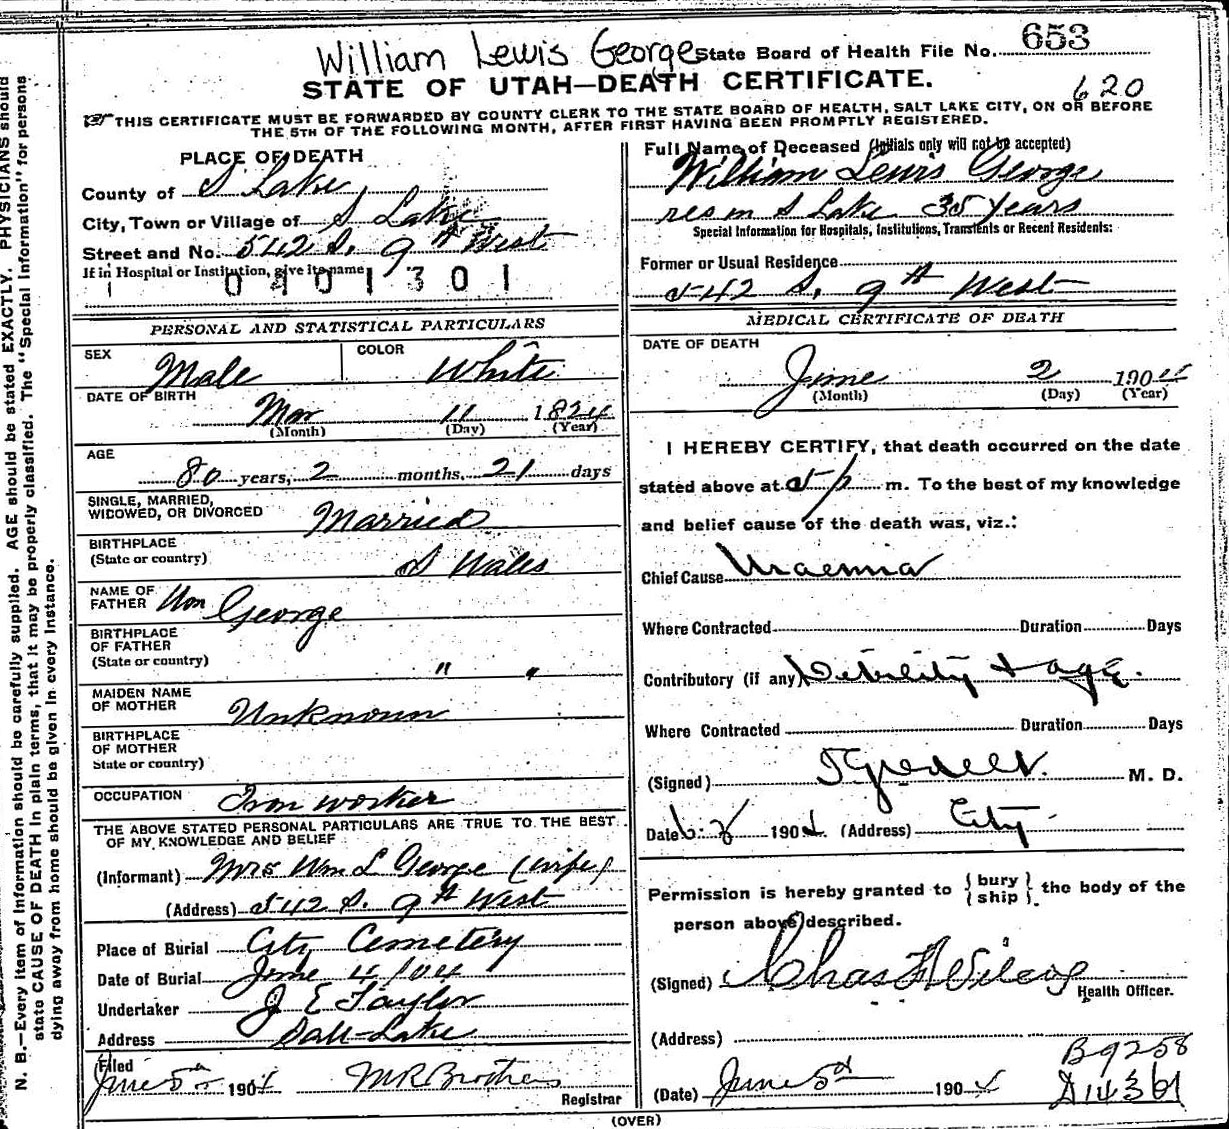 William Lewis George State Board of Health File No. 653
STATE OF UTAH—DEATH CERTIFICATE.
620
THIS CERTIFICATE MUST BE FORWARDED BY COUNTY CLERK TO THE STATE BOARD OF HEALTH, SALT LAKE CITY, ON OR BEFORE
THE 5TH OF THE FOLLOWING MONTH, AFTER FIRST HAVING BEEN PROMPTLY REGISTERED.
PLACE OF DEATH
County of S Lake
City, Town or Village of S Lake
Street and No. 542 S. 9th West
If in Hospital or Institution, give its name
0401301
PERSONAL AND STATISTICAL PARTICULARS
SEX Male COLOR White
DATE OF BIRTH
Mar 11 1824
(Month) (Day) (Year)
AGE
80 years, 2 months, 21 days
SINGLE, MARRIED,
WIDOWED, OR DIVORCED Married
BIRTHPLACE
(State or country) S Wales
NAME OF
FATHER Wm George
BIRTHPLACE
OF FATHER
(State or country) " "
MAIDEN NAME
OF MOTHER Unknown
BIRTHPLACE
OF MOTHER
State or country)
OCCUPATION Iron worker
THE ABOVE STATED PERSONAL PARTICULARS ARE TRUE TO THE BEST
OF MY KNOWLEDGE AND BELIEF
(Informant) Mrs Wm L George (wife)
(Address) 542 S. 9th West
Place of Burial City Cemetery
Date of Burial June 4/04
Undertaker J E Taylor
Address Salt Lake
Filed
June 5th 1904 M R Brothers
Registrar
Full Name of Deceased (Initials only will not be accepted)
William Lewis George
res in S Lake 35 years
Special Information for Hospitals, Institutions, Transients or Recent Residents:
Former or Usual Residence
542 S. 9th West
MEDICAL CERTIFICATE OF DEATH
DATE OF DEATH
June 2 1904
(Month) (Day) (Year)
I HEREBY CERTIFY, that death occurred on the date
stated above at 5 p m. To the best of my knowledge
and belief cause of the death was, viz.:
Chief Cause Uraemia
Where Contracted Duration Days
Contributory (if any) Debility + age.
Where Contracted Duration Days
(Signed) M. D.
Date 1904 (Address) City
Permission is hereby granted to {bury
ship} the body of the
person above described.
(Signed) Chas F Wilcox
Health Officer.
(Address)
B9258
(Date) June 5th 1904 D14361
(OVER)
N. B.—Every item of information should be carefully supplied. AGE should be stated EXACTLY. PHYSICIANS should
state CAUSE OF DEATH in plain terms, that it may be properly classified. The "Special Information" for persons
dying away from home should be given in every instance.